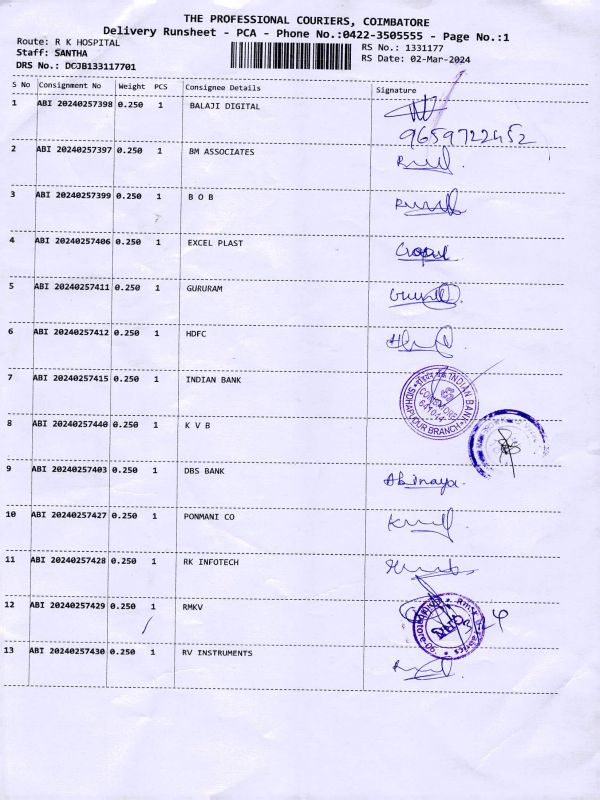 THE PROFESSIONAL COURIERS, COIMBATORE
Delivery Runsheet - PCA - Phone No.:0422-3505555 - Page No.:1
Route: R K HOSPITAL
Staff: SANTHA
DRS No.: DCJB133117701
RS No.: 1331177
RS Date: 02-Mar-2024
S No Consignment No Weight PCS Consignee Details Signature
1 ABI 20240257398 0.250 1 BALAJI DIGITAL
9659722452
2 ABI 20240257397 0.250 1 BM ASSOCIATES
3 ABI 20240257399 0.250 1 B O B
4 ABI 20240257406 0.250 1 EXCEL PLAST
5 ABI 20240257411 0.250 1 GURURAM
6 ABI 20240257412 0.250 1 HDFC
7 ABI 20240257415 0.250 1 INDIAN BANK
INDIAN BANK
COIMBATORE
641044
SIDHAPUDUR BRANCH
8 ABI 20240257440 0.250 1 K V B
9 ABI 20240257403 0.250 1 DBS BANK Abinaya.
10 ABI 20240257427 0.250 1 PONMANI CO
11 ABI 20240257428 0.250 1 RK INFOTECH
12 ABI 20240257429 0.250 1 RMKV
13 ABI 20240257430 0.250 1 RV INSTRUMENTS